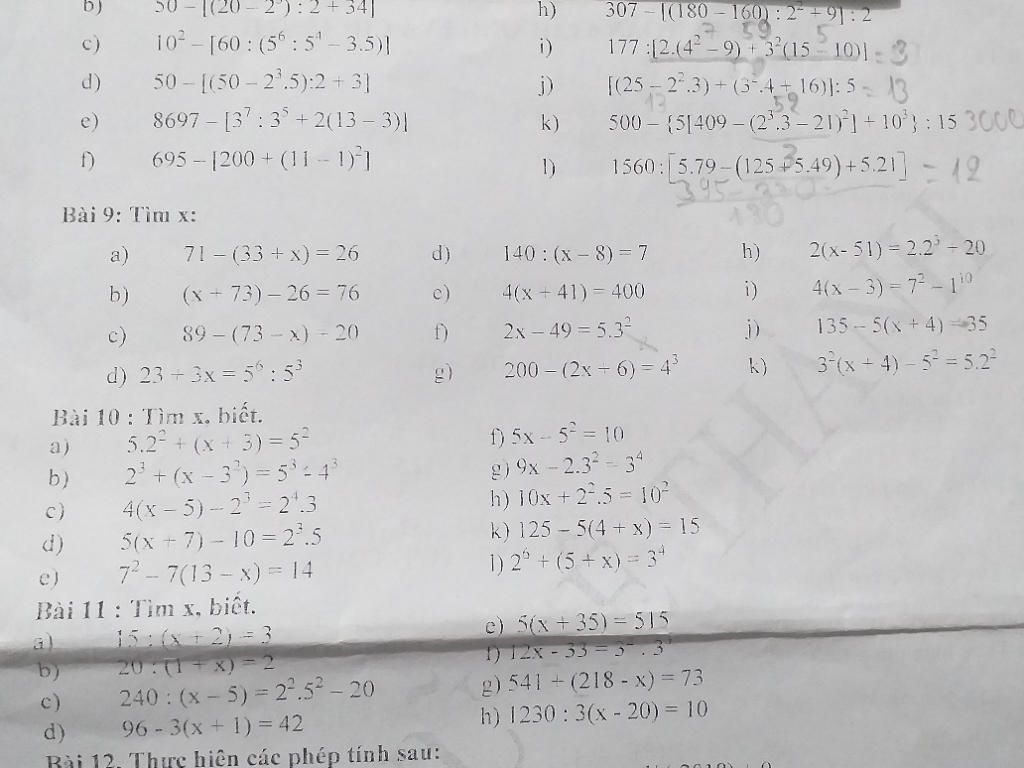 b) 50 – [(20 – 2³) : 2 + 34]
c) 10² – [60 : (5⁶ : 5⁴ – 3.5)]
d) 50 – [(50 – 2³.5):2 + 3]
e) 8697 – [3⁷ : 3⁵ + 2(13 – 3)]
f) 695 – [200 + (11 – 1)²]
h) 307 – [(180 – 160) : 2² + 9] : 2
7 59 5
i) 177 :[2.(4² – 9) + 3²(15 – 10)] = 3
j) [(25 – 2².3) + (3².4 + 16)]: 5 = 13
13 52
k) 500 – {5[409 – (2³.3 – 21)²] + 10³} : 15 3000
3
l) 1560 : [5.79 – (125 + 5.49) + 5.21] = 12
395 - 370
180
Bài 9: Tìm x:
a) 71 – (33 + x) = 26
b) (x + 73) – 26 = 76
c) 89 – (73 – x) = 20
d) 23 + 3x = 5⁶ : 5³
d) 140 : (x – 8) = 7
e) 4(x + 41) = 400
f) 2x – 49 = 5.3²
g) 200 – (2x + 6) = 4³
h) 2(x- 51) = 2.2³ + 20
i) 4(x – 3) = 7² – 1¹⁰
j) 135 – 5(x + 4) = 35
k) 3²(x + 4) – 5² = 5.2²
Bài 10 : Tìm x, biết.
a) 5.2² + (x + 3) = 5²
b) 2³ + (x – 3²) = 5³ - 4³
c) 4(x – 5) – 2³ = 2⁴.3
d) 5(x + 7) – 10 = 2³.5
e) 7² – 7(13 – x) = 14
f) 5x – 5² = 10
g) 9x – 2.3² = 3⁴
h) 10x + 2².5 = 10²
k) 125 – 5(4 + x) = 15
l) 2⁶ + (5 + x) = 3⁴
Bài 11 : Tìm x, biết.
a) 15 : (x + 2) = 3
b) 20 : (1 + x) = 2
c) 240 : (x – 5) = 2².5² – 20
d) 96 - 3(x + 1) = 42
e) 5(x + 35) = 515
f) 12x - 33 = 3² . 3³
g) 541 + (218 - x) = 73
h) 1230 : 3(x - 20) = 10
Bài 12. Thực hiện các phép tính sau: